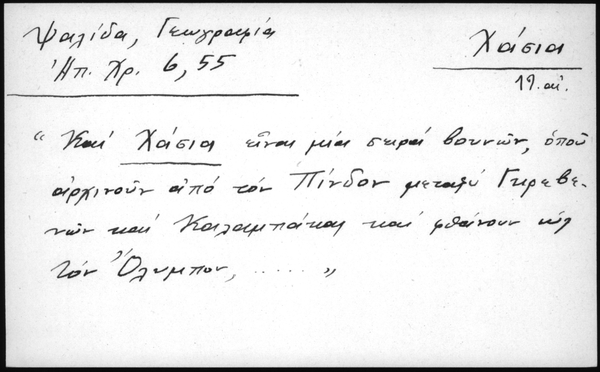 Ψαλίδα, Γεωγραφία
Ἠπ. Χρ. 6, 55
Χάσια
19. αἰ.
“ Καί Χάσια εἶναι μία σειρά βουνῶν, ὁποῦ
ἀρχινοῦν ἀπό τόν Πίνδον μεταξύ Γκρεβε-
νῶν καί Καλαμπάκας καί φθάνουν ὡς
τόν Ὄλυμπον, ...... „